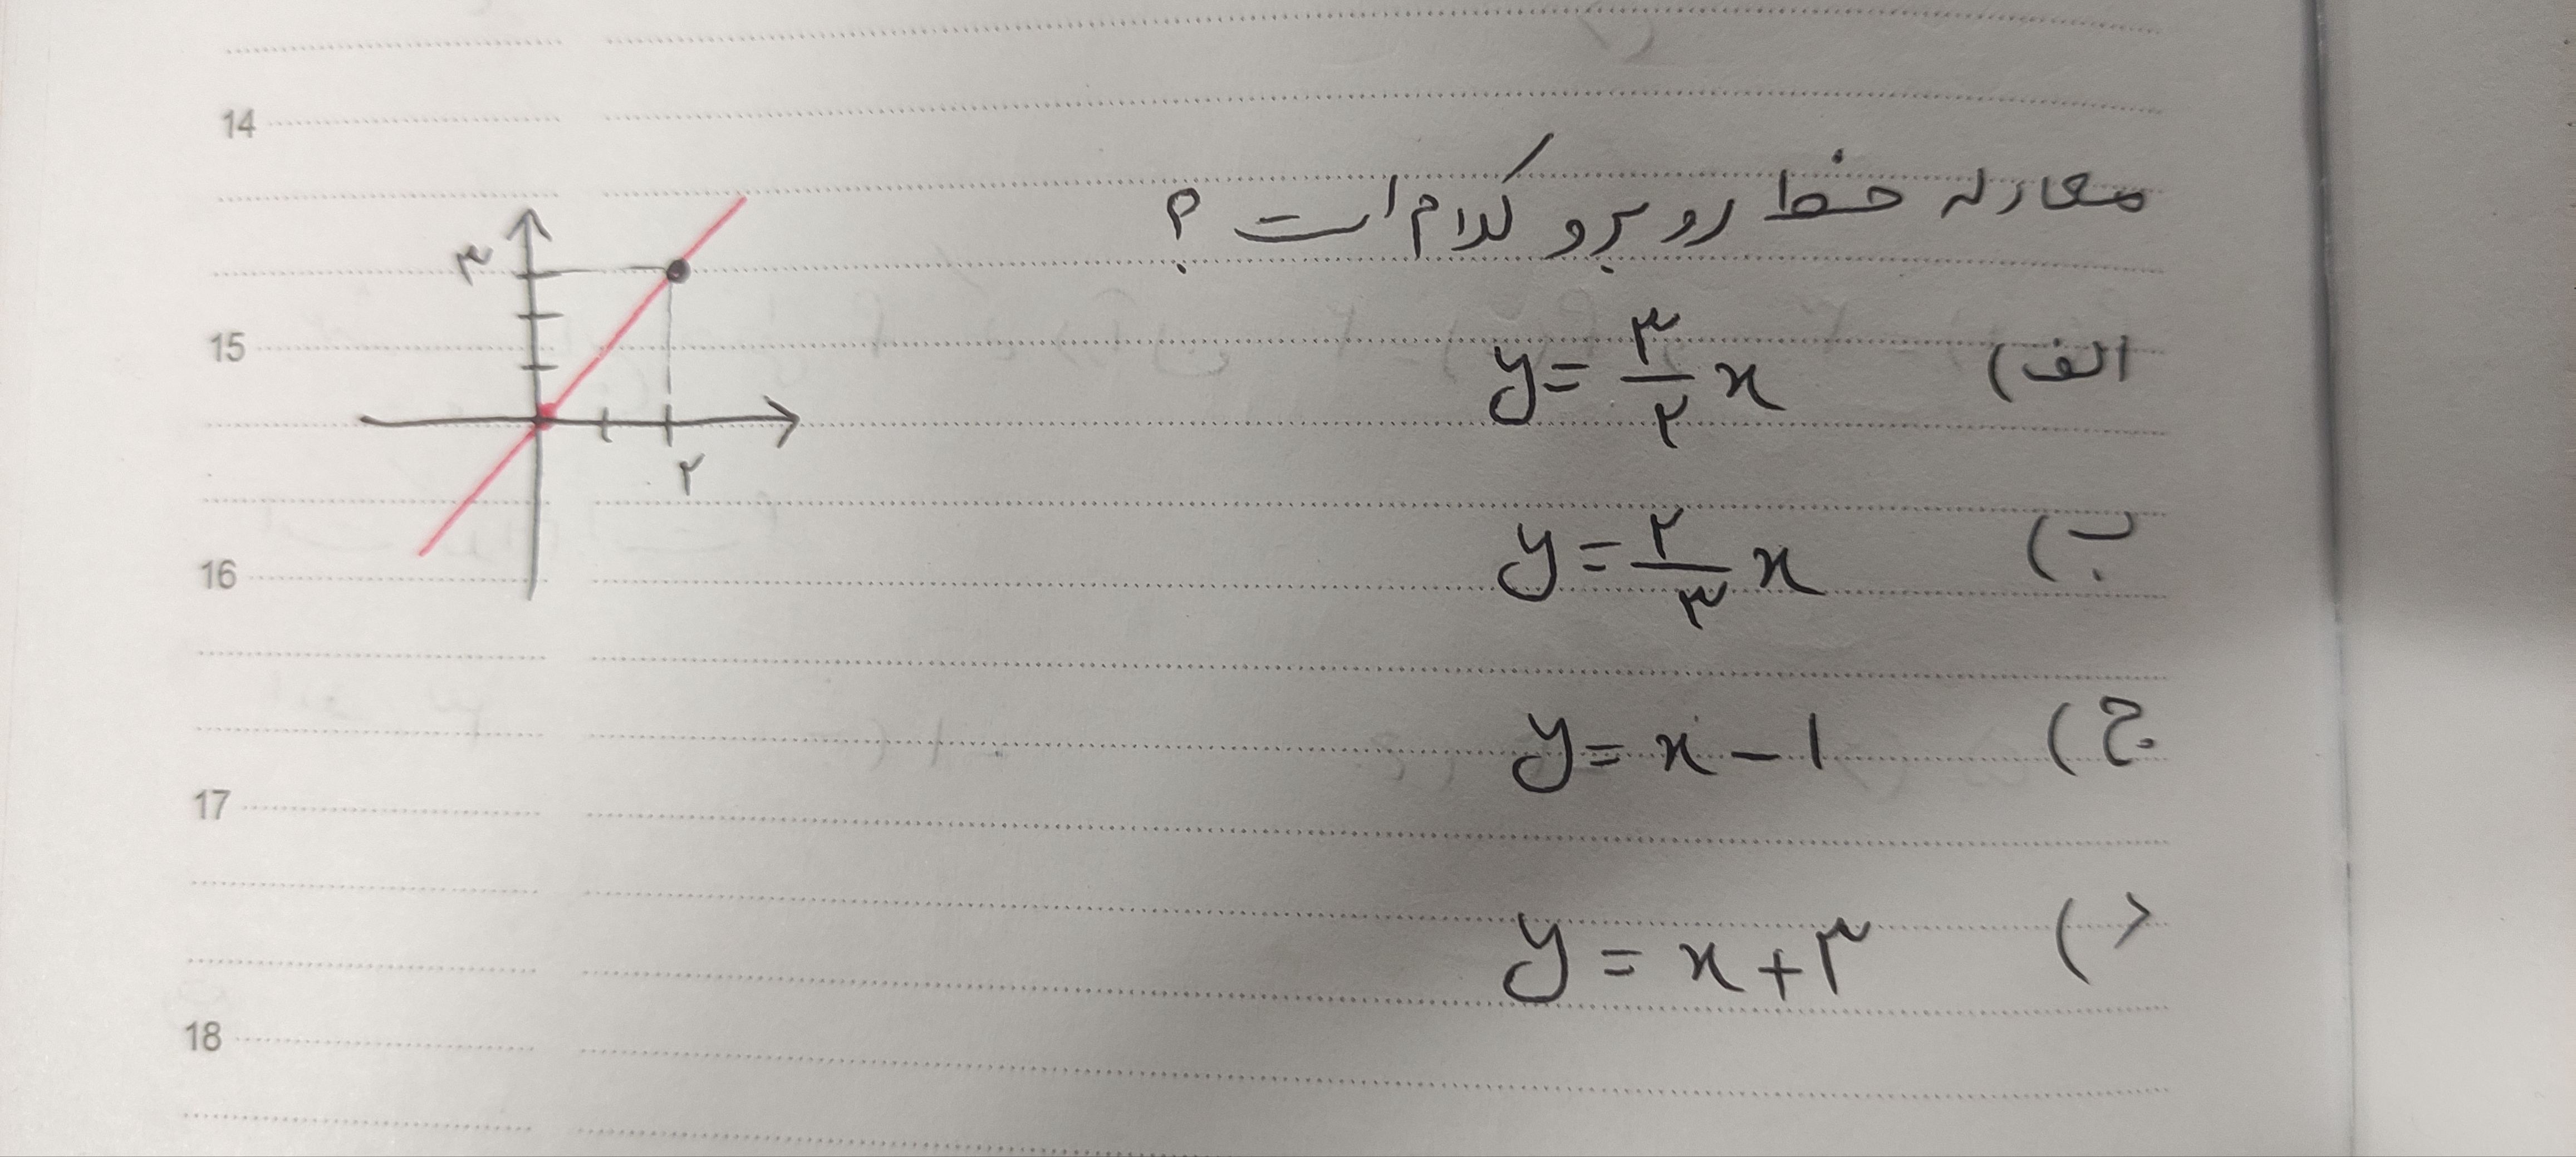 14
معادله خط روبرو کدام است ؟
۳
15
الف) y = ۳/۲ x
۲
16
ب) y = ۲/۳ x
17
ج) y = x - ۱
18
د) y = x + ۳